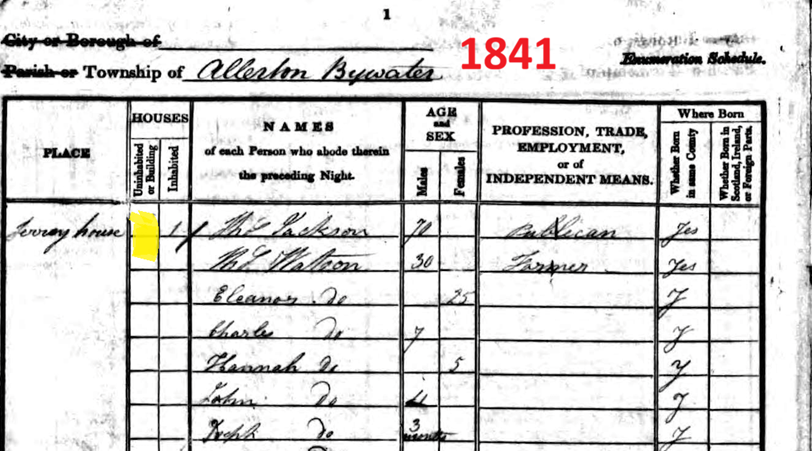 1
City or Borough of
1841
Enumeration Schedule.
Parish or Township of Allerton Bywater
PLACE
HOUSES
Uninhabited or Building
Inhabited
NAMES
of each Person who abode therein
the preceding Night.
AGE
and
SEX
Males
Females
PROFESSION, TRADE,
EMPLOYMENT,
or of
INDEPENDENT MEANS.
Where Born
Whether Born in same County
Whether Born in Scotland, Ireland, or Foreign Parts.
Ferry house 1 Thos Jackson 70 Publican Yes
Thos Watson 30 Farmer Yes
Eleanor do 25 Y
Charles do 7 Y
Hannah do 5 Y
John do 4 Y
Joseph do 3 months Y